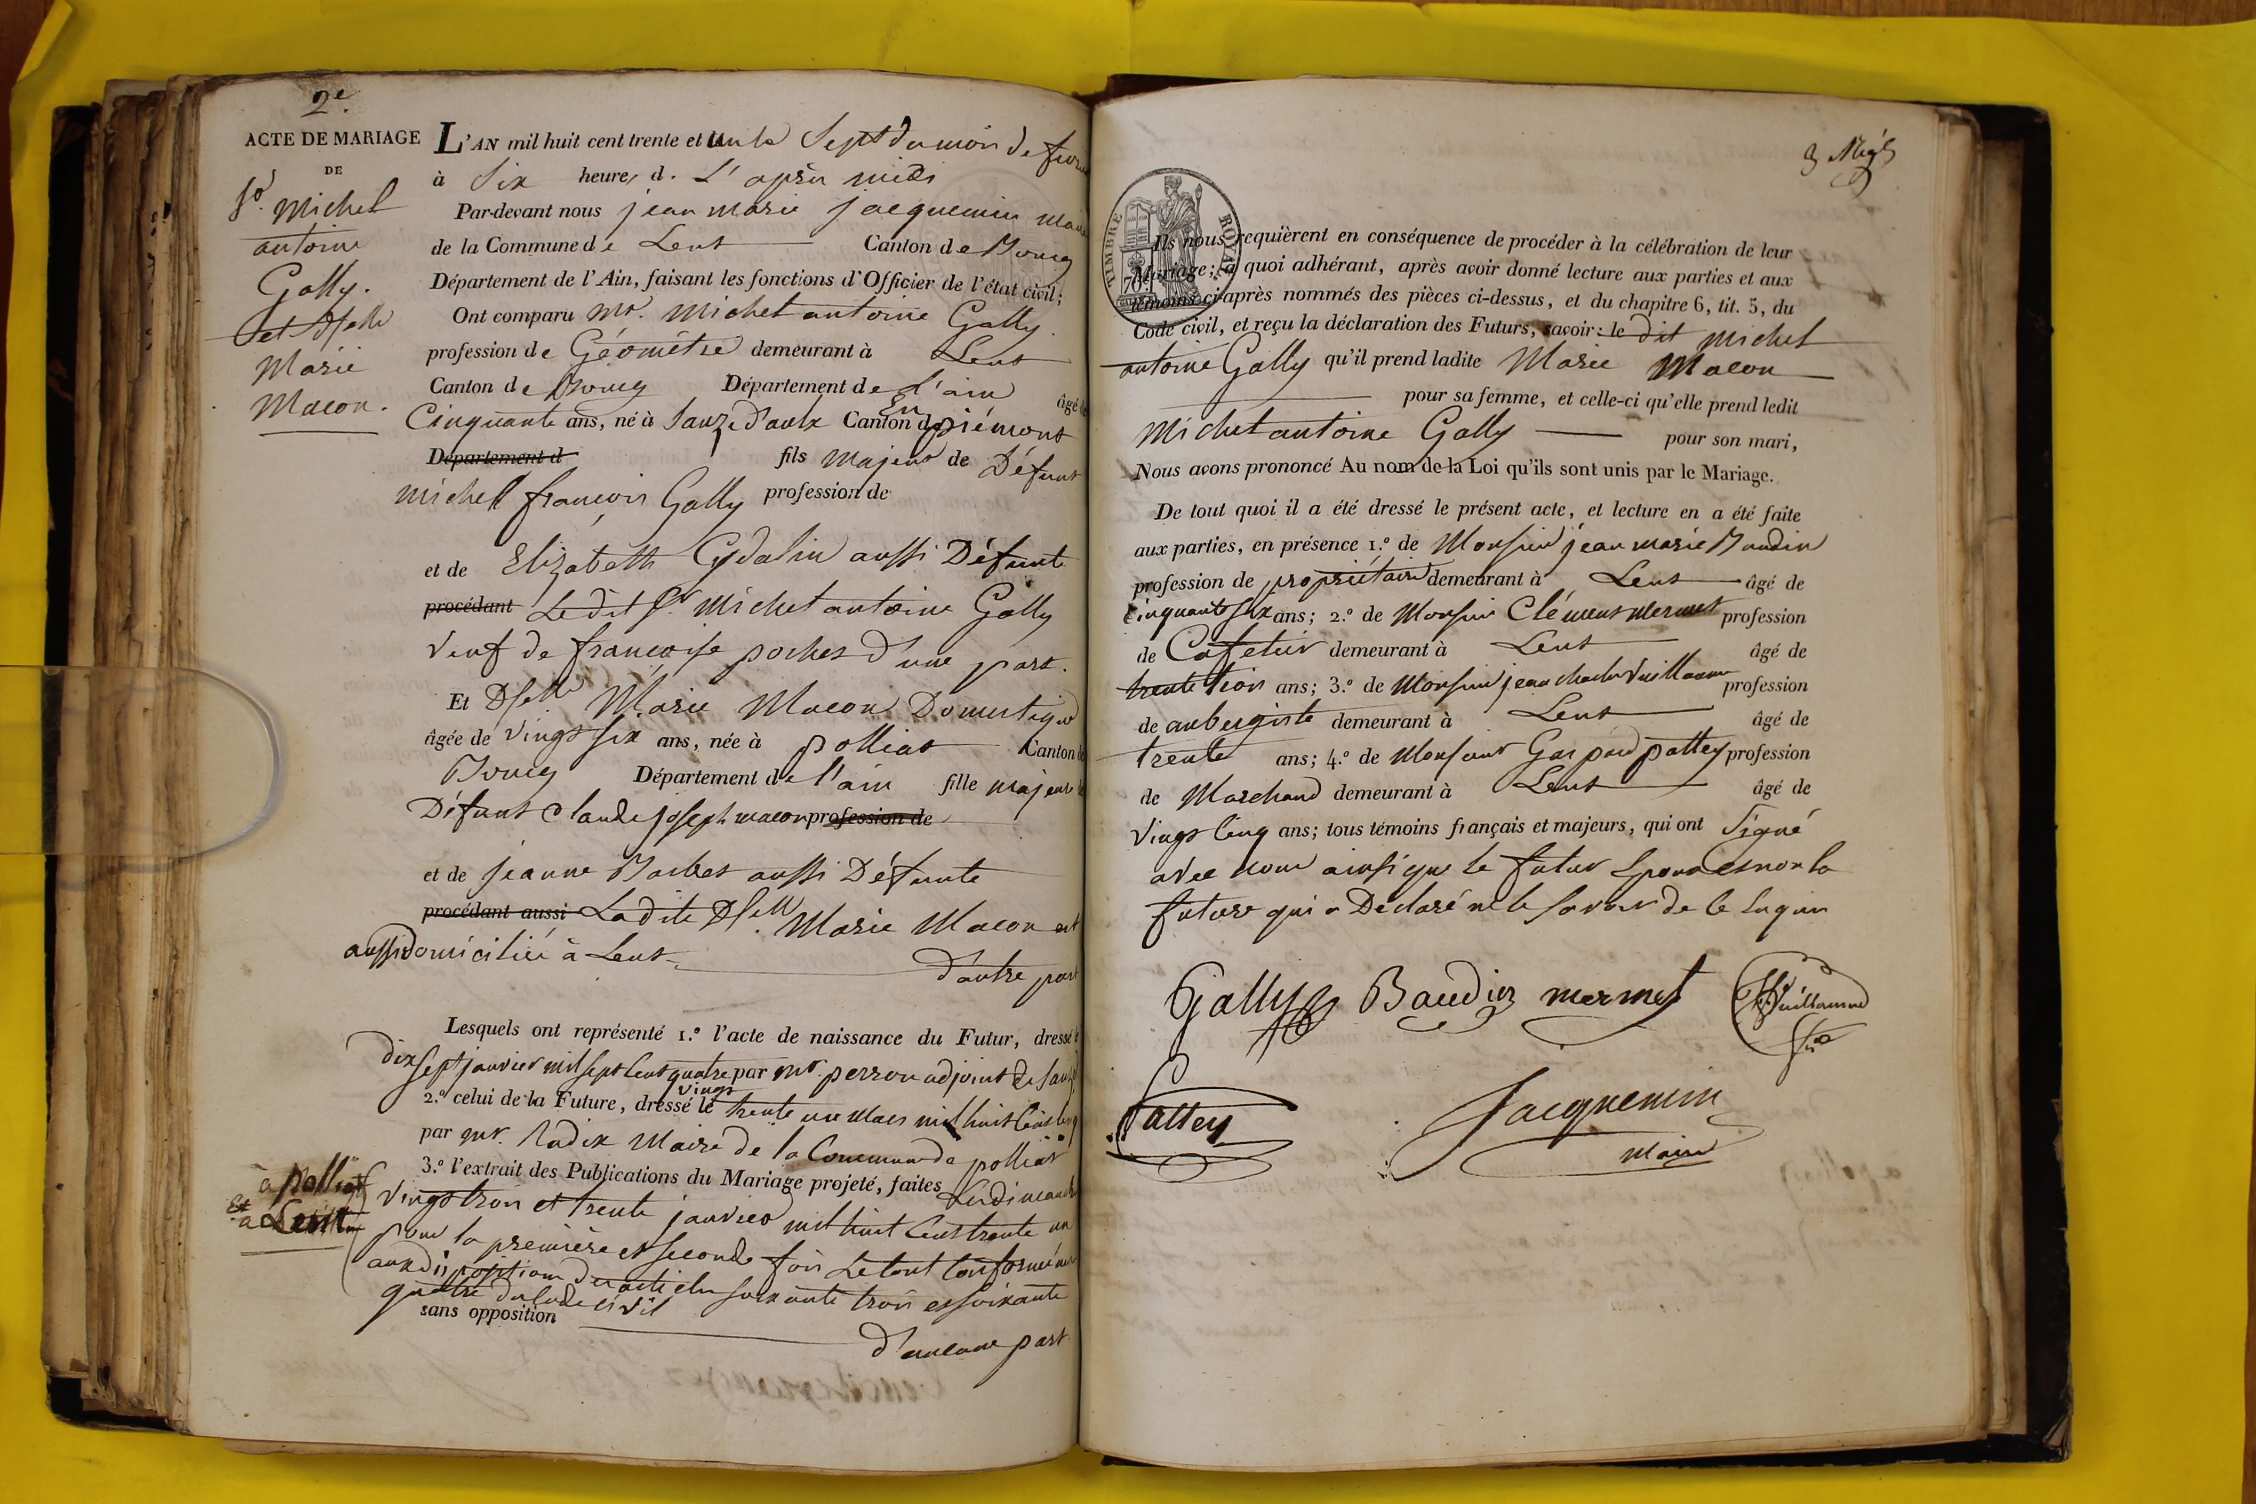 2e.
ACTE DE MARIAGE
DE
Sr. Michel
antoine
Gally.
et Dselle
Marie
Macon.
L'AN mil huit cent trente et un le Sept du mois de
à Six heures d. L'après midi
Par-devant nous jean marie jacquemin
de la Commune de Lent Canton de Bourg
Département de l'Ain, faisant les fonctions d'Officier de l'état civil;
Ont comparu mr. Michel antoine Gally.
profession de Géomètre demeurant à Lent
Canton de Bourg Département de L'ain âgé de
Cinquante ans, né à Sauze d'aulx Canton d En piémont
Département d fils majeur de Défunt
michel françois Gally profession de
et de Elizabeth aussi Défunte
procédant Le dit Sr. Michel antoine Gally
veuf de françoise d'une part.
Et Dselle Marie Macon Domestique
âgée de vingt six ans, née à polliat Canton de
Bourg Département de l'ain fille majeure de
Défunt Claude joseph macon profession de
et de jeanne aussi Défunte
procédant aussi Ladite Dselle. Marie Macon est
aussi domiciliée à Lent d'autre part
Lesquels ont représenté 1.° l'acte de naissance du Futur, dressé le
dix sept janvier mil sept cent quatre vingt par mr. perron adjoint de
2.° celui de la Future, dressé le trente un Mars mil huit cent cinq
par mr. Radix Maire de la Commune de polliat
3.° l'extrait des Publications du Mariage projeté, faites à polliat
Et à Lent
Les dimanche
vingt trois et trente janvier mil huit cent trente un
pour la première et seconde fois Le tout conformément
aux dispositions des articles soixante trois et soixante
quatre du Code civil
sans opposition
d'aucune part
TIMBRE ROYAL
70
Ils nous requièrent en conséquence de procéder à la célébration de leur
Mariage; à quoi adhérant, après avoir donné lecture aux parties et aux
témoins ci-après nommés des pièces ci-dessus, et du chapitre 6, tit. 5, du
Code civil, et reçu la déclaration des Futurs, savoir: le dit Michel
antoine Gally qu'il prend ladite Marie Macon
pour sa femme, et celle-ci qu'elle prend ledit
Michel antoine Gally pour son mari,
Nous avons prononcé Au nom de la Loi qu'ils sont unis par le Mariage.
De tout quoi il a été dressé le présent acte, et lecture en a été faite
aux parties, en présence 1.° de Monsieur jean marie Baudin
profession de propriétaire demeurant à Lent âgé de
Cinquante six ans; 2.° de Monsieur Clément Mermet profession
de Cafetier demeurant à Lent âgé de
trente trois ans; 3.° de Monsieur jean charles Vuillaume profession
de aubergiste demeurant à Lent âgé de
trente ans; 4.° de Monsieur Gaspard pattey profession
de Marchand demeurant à Lent âgé de
vingt cinq ans; tous témoins français et majeurs, qui ont Signé
avec nous ainsi que le futur Epoux et non la
future qui a Déclaré ne le savoir de ce Enquis
Gally Baudin mermet Vuillaume
Pattey
Jacquemin
Maire